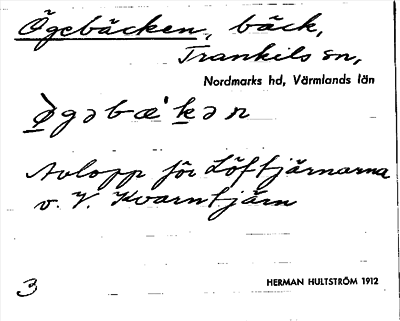 Ögebäcken, bäck,
Trankils sn,
Nordmarks hd, Värmlands län
Ø̀gəbæ'kən
Avlopp för Löftjärnarna
v. V. Kvarntjärn
3
HERMAN HULTSTRÖM 1912